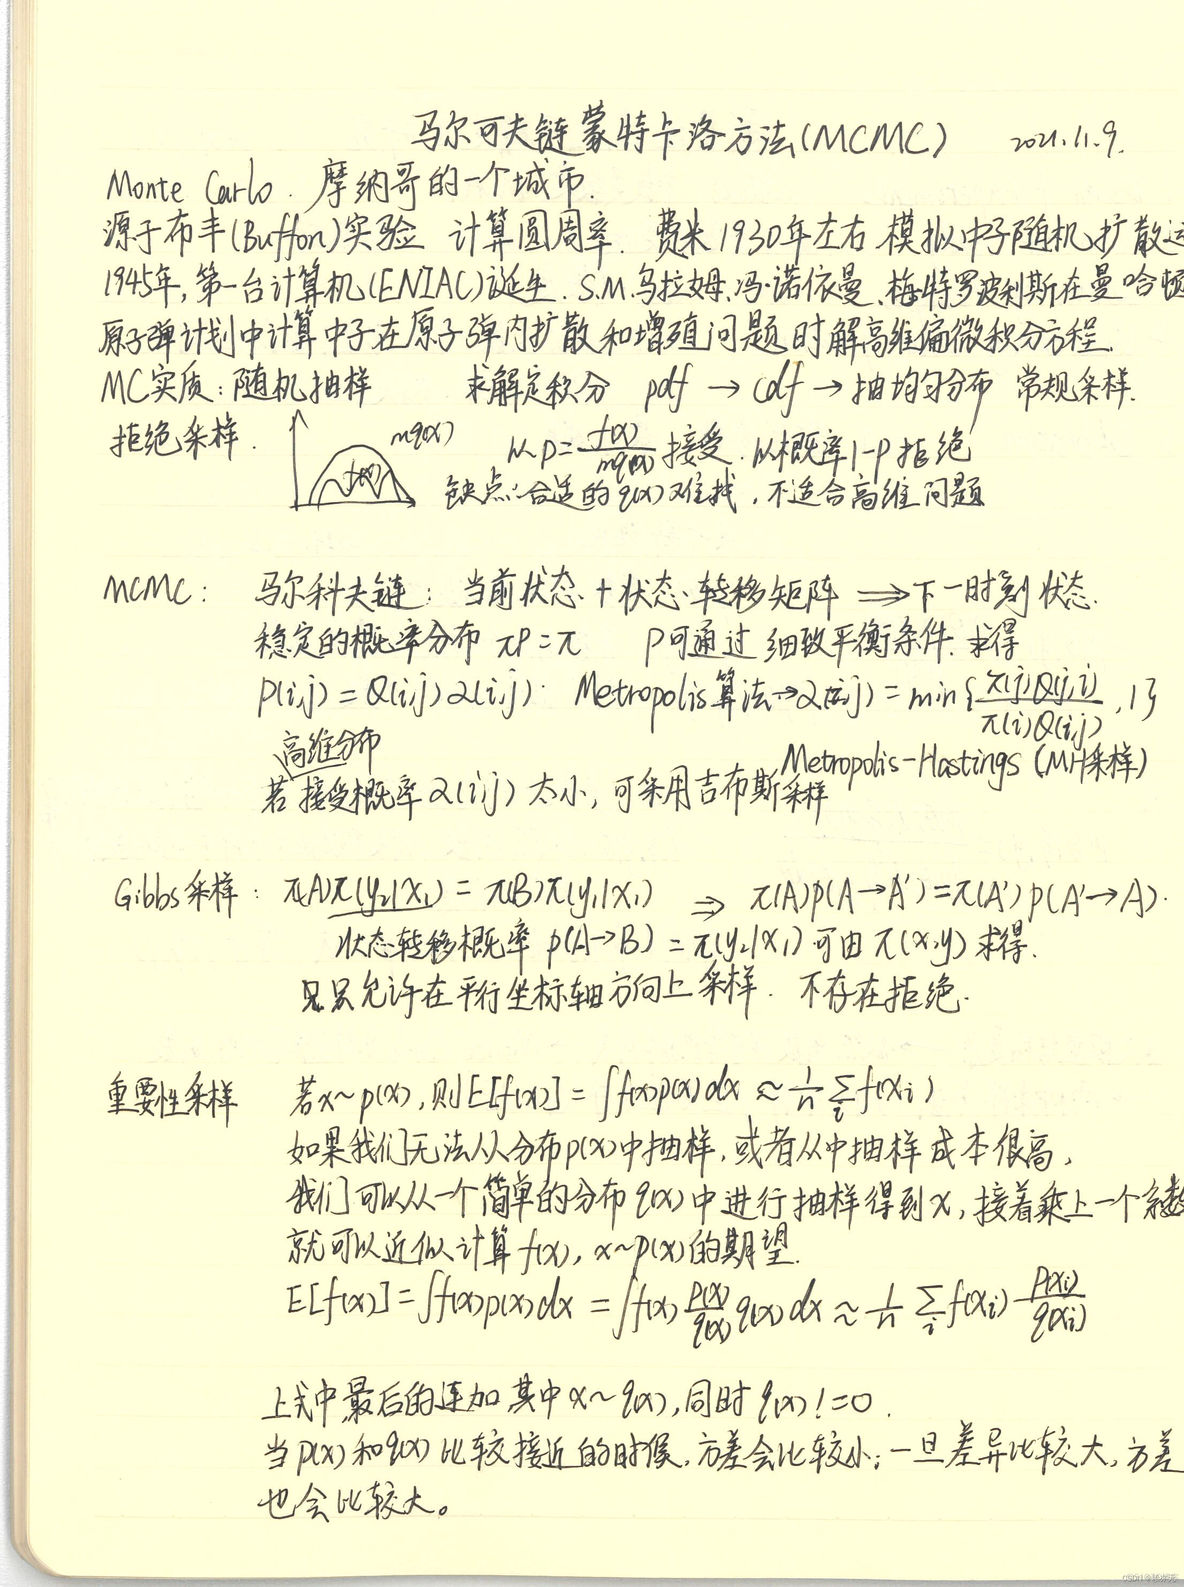 马尔可夫链蒙特卡洛方法(MCMC) 2021.11.9.
Monte Carlo. 摩纳哥的一个城市.
源于布丰(Buffon)实验 计算圆周率. 费米1930年左右 模拟中子随机扩散运
1945年,第一台计算机(ENIAC)诞生. S.M.乌拉姆、冯·诺依曼、梅特罗波利斯在曼哈顿
原子弹计划中计算中子在原子弹内扩散和增殖问题时解高维偏微积分方程.
MC实质:随机抽样 求解定积分 pdf → cdf → 抽均匀分布 常规采样.
拒绝采样. mq(x) f(x) 以p=f(x)/mq(x) 接受. 以概率1-p拒绝
缺点:合适的q(x)难找,不适合高维问题
MCMC: 马尔科夫链: 当前状态 + 状态转移矩阵 ⇒ 下一时刻状态.
稳定的概率分布 πP=π P可通过 细致平衡条件. 求得
P(i,j) = Q(i,j) α(i,j). Metropolis算法→α(i,j) = min{π(j)Q(j,i)/π(i)Q(i,j), 1}
高维分布 Metropolis-Hastings (MH采样)
若接受概率α(i,j)太小,可采用吉布斯采样
Gibbs采样: π(A)π(y₂|x₁) = π(B)π(y₁|x₁) ⇒ π(A)p(A→A')=π(A')p(A'→A).
状态转移概率 p(A→B) = π(y₂|x₁) 可由π(x,y)求得.
只允许在平行坐标轴方向上采样. 不存在拒绝.
重要性采样 若x~p(x),则E[f(x)] = ∫f(x)p(x)dx ≈ 1/n ∑ᵢ f(xᵢ)
如果我们无法从分布p(x)中抽样,或者从中抽样成本很高,
我们可以从一个简单的分布q(x)中进行抽样得到x,接着乘上一个系数
就可以近似计算f(x), x~p(x)的期望.
E[f(x)] = ∫f(x)p(x)dx = ∫f(x) p(x)/q(x) q(x)dx ≈ 1/n ∑ᵢ f(xᵢ) p(xᵢ)/q(xᵢ)
上式中最后的连加其中x~q(x),同时q(x)!=0.
当p(x)和q(x)比较接近的时候,方差会比较小;一旦差异比较大,方差
也会比较大。